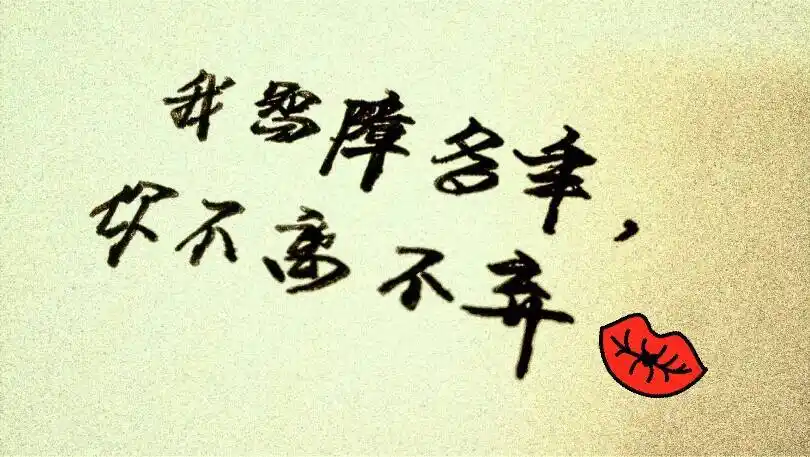 我智障多年，
你不离不弃